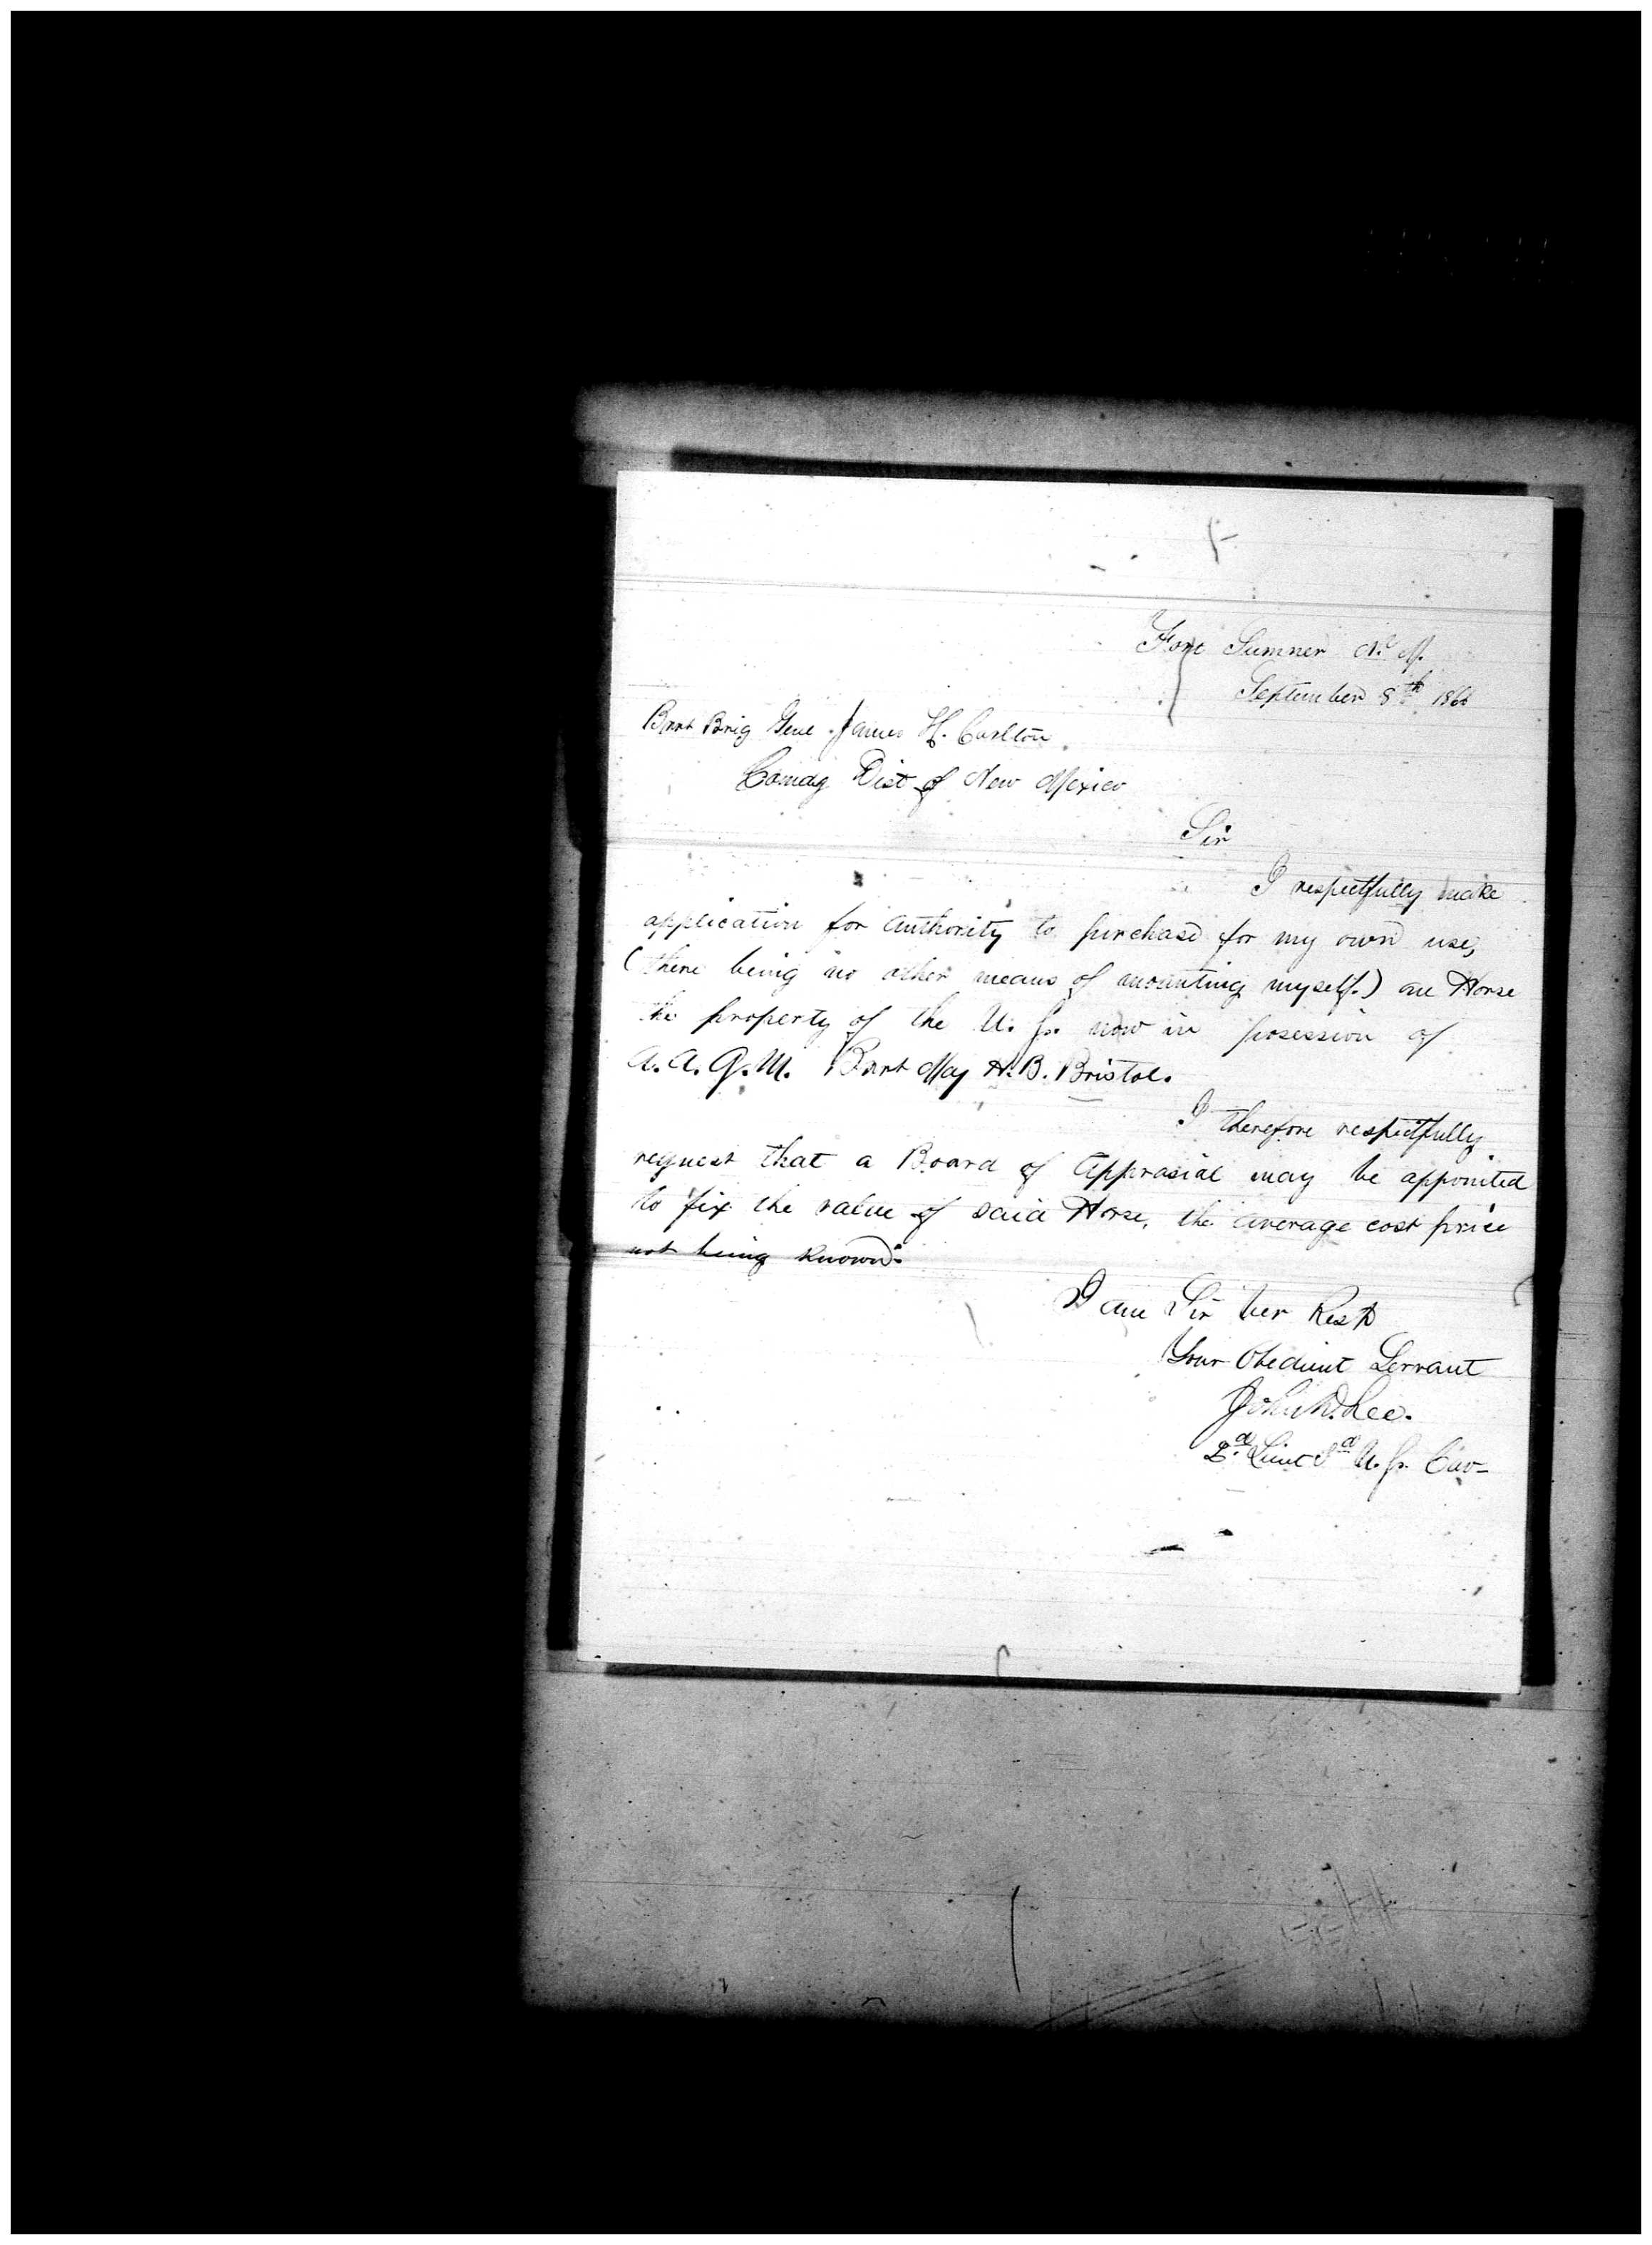 Fort Sumner N. M.
September 8th 1866
Bvvt Brig Genl James H. Carlton
Comdg Dist of New Mexico
Sir
I respectfully make
application for authority to purchase for my own use,
(there being no other means of mounting myself.) one Horse
the property of the U. S. now in posession of
A. A. Q. M. Bvvt Maj H. B. Bristol.
I therefore respectfully
request that a Board of Apprasial may be appointed
to fix the value of said Horse, the average cost price
not being known.
I am Sir Ver Rest
Your Obedient Servant
John D. Lee.
2d Lieut 3d U. S. Cav-